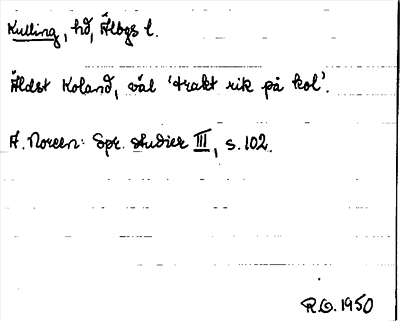 Kulling, hd, Älvgs l.
Äldst Koland, väl 'trakt rik på kol'.
A. Noreen: Spr. studier III, s. 102.
R.O. 1950